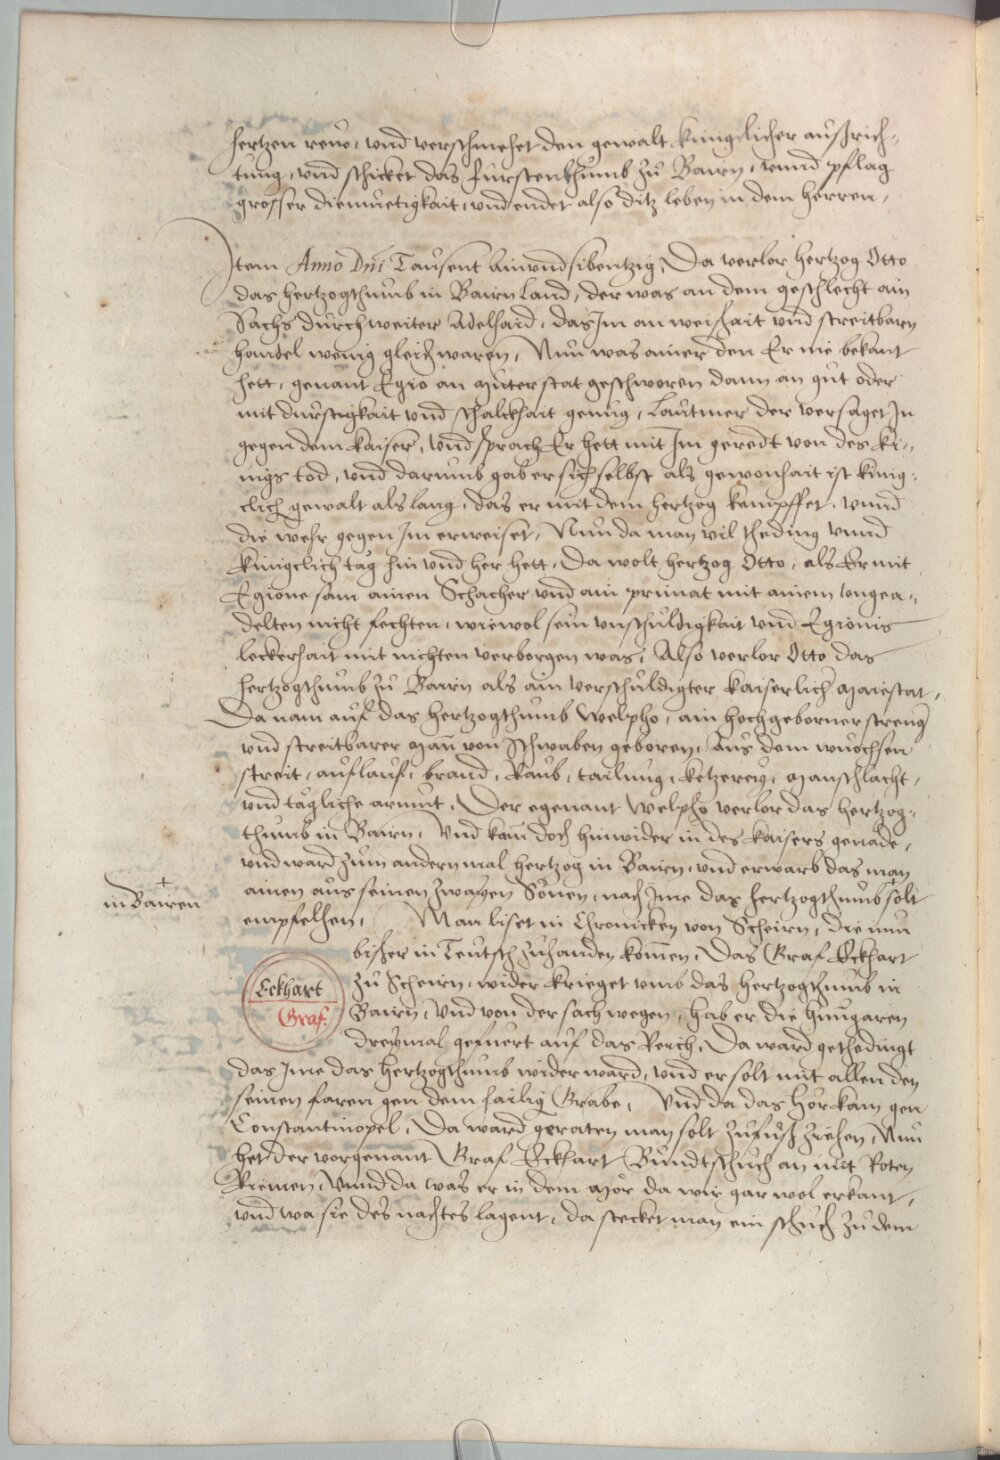 hertzen reuͦe, vnd verschmehet den gewalt kunigclicher außrich-
tung, vnd schicket das furstenthumb zu Bairn, vnnd pflag
grosser diemuetigkait, vnd endet also ditz leben in dem herren,
Item Anno Dni Tausent Ainvndsibentzig, Da verlor hertzog Otto
das hertzogthumb in Bairn land, der was an dem geschlecht ain
Sachs durch weiter Adelhaid, das Im an weißhait vnd streitbarn
handel wenig gleich waren, Nun was ainer den Er nie bekant
hett, genant Egio an muterstat geschworen dann an gut oder
mit durstigkait vnd schalckhait genug, lautmer der versaget In
gegen dem kaiser, vnd sprach Er hett mit Im geredt von des ki-
nigs tod, vnd darumb gab er sich selbst als gewonhait ist kunig-
clich gewalt als lang, das er mit dem hertzog kempffet, vnnd
die wehr gegen Im erweiset, Nun da man vil theding vnnd
kunigclich tag hin vnd her hett, Da wolt hertzog Otto, als Er mit
Egione sam ainen Schacher vnd ain primat mit ainem vngea-
delten nicht fechten, wiewol sein vnschuldigkait vnd Egionis
leckerhait mit nichten verborgen was, Also verlor Otto das
hertzogthumb zu Bairn als ain verschuldigter kaiserlicher maiestat,
Da nam auf das hertzogthumb Welpho, ain hochgeborner streng
vnd streitbarer man von Schwaben geboren, Aus dem wuochsen
streit, auflauf, brand, Raub, tailung, ketzerey, manschlacht,
vnd tägliche armut, Der egenant Welpho verlor das hertzog-
thumb in Bairn, Vnd kam doch hinwider in des kaisers genade,
vnd ward zum andern mal hertzog in Bairn, vnd erwarb das man
ainen aus seinen zwayen Sönen, nach Ime das hertzogthumb + solt
+ in Bairen
empfelhen, Man liset in Chronicken von Scheirn, die nun
bißher in Teutsch zuhanden komen, Das Graf Eckhart
Eckhart Graf.
zu Scheirn, wider krieget vmb das hertzogthumb in
Bairn, Vnd von der sach wegen, hab er die hungaren
dreymal gefuert auf das Reich, Da ward gethedingt
das Ime das hertzogthumb wider ward, vnd er solt mit allen den
seinen faren gen dem hailig Grabe, Vnd da das hör kam gen
Constantinopel, Da ward geraten man solt zufuß ziehen, Nun
het der vorgenant Graf Eckhart Bundtschuch an mit Roten
Riemen, Vnnd da was er in dem mör da wir gar wol erkant,
vnd wa sie des nachtes lagent, da stecket man ein schuch zu dem